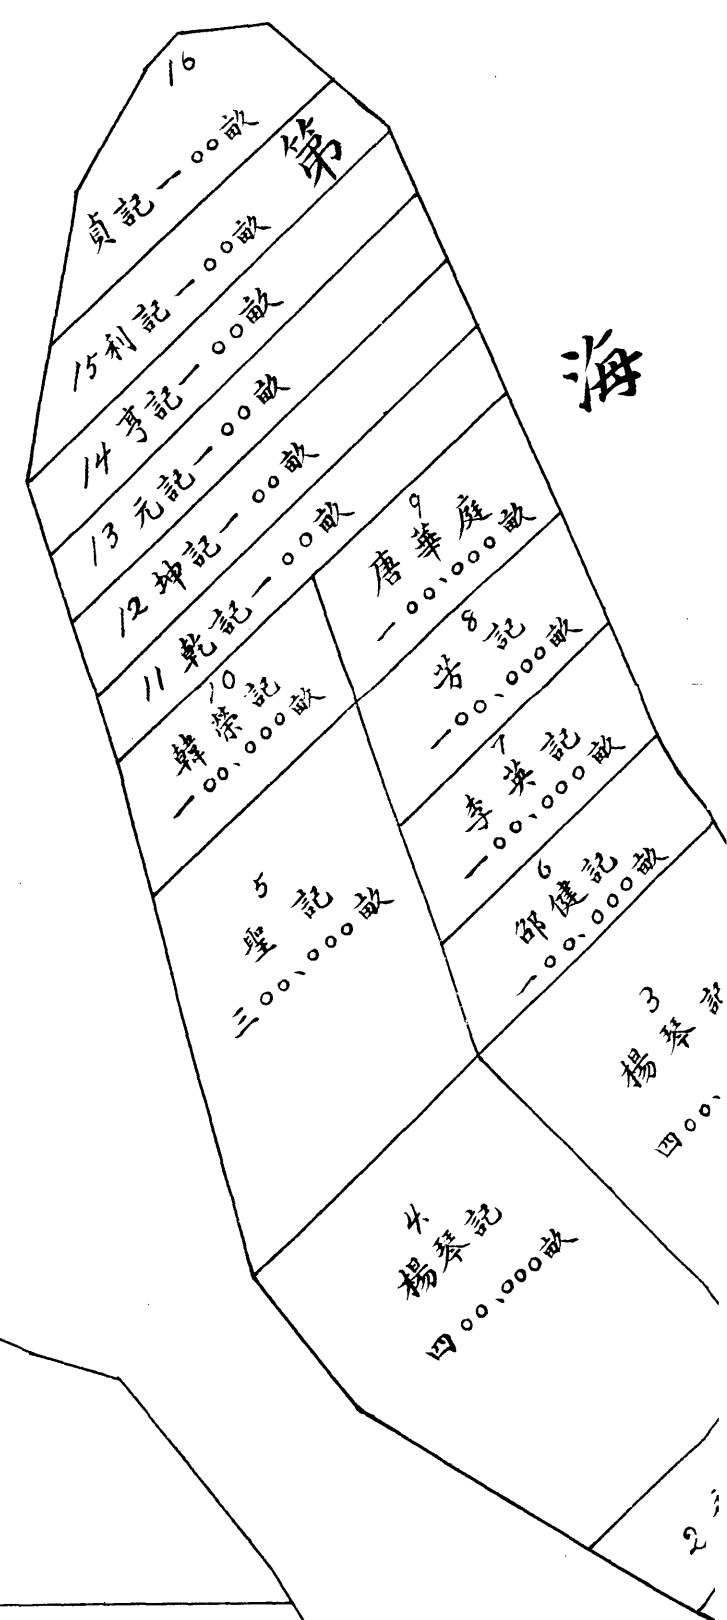 16
貞記一〇〇畝
第
15利記一〇〇畝
14亨記一〇〇畝
13元記一〇〇畝
12坤記一〇〇畝
11乾記一〇〇畝
海
9
唐華庭
一〇〇、〇〇〇畝
8
芳記
一〇〇、〇〇〇畝
10
韓榮記
一〇〇、〇〇〇畝
7
李英記
一〇〇、〇〇〇畝
6
邵健記
一〇〇、〇〇〇畝
5
聖記
三〇〇、〇〇〇畝
3
楊琴記
四〇〇、
4
楊琴記
四〇〇、〇〇〇畝
2